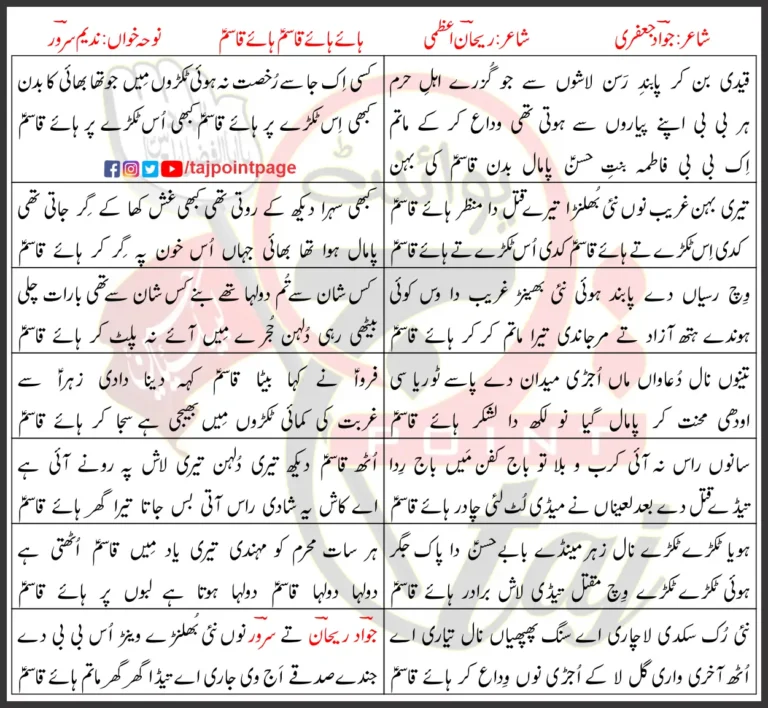 شاعر: جواد جعفری شاعر: ریحان اعظمی ہائے ہائے قاسمؑ ہائے قاسمؑ نوحہ خواں: ندیم سرور
قیدی بن کر پابندِ رَسن لاشوں سے جو گُزرے اہلِ حرم
ہر بی بی اپنے پیاروں سے ہوتی تھی وداع کر کے ماتم
اِک بی بی فاطمہ بنتِ حسنؑ پامال بدن قاسمؑ کی بہن
کسی اِک جا سے رُخصت نہ ہوئی ٹکڑوں مِیں جو تھا بھائی کا بدن
کبھی اِس ٹکڑے پر ہائے قاسمؑ کبھی اُس ٹکڑے پر ہائے قاسمؑ
/tajpointpage
تیری بہن غریب نوں نئی بُھلنڑا تیرے قتل دا منظر ہائے قاسمؑ
کدی اِس ٹکڑے تے ہائے قاسمؑ کدی اُس ٹکڑے تے ہائے قاسمؑ
کبھی سہرا دیکھ کے روتی تھی کبھی غش کھا کے گِر جاتی تھی
پامال ہوا تھا بھائی جہاں اُس خون پہ گِر کر ہائے قاسمؑ
وِچ رسیاں دے پابند ہوئی نئی بھینڑ غریب دا وَس کوئی
ہوندے ہتھ آزاد تے مرجاندی تیرا ماتم کر کر ہائے قاسمؑ
کس شان سے تُم دولہا تھے بنے کس شان سے تھی بارات چلی
بیٹھی رہی دُلہن حُجرے مِیں آئے نہ پلٹ کر ہائے قاسمؑ
تینوں نال دُعاواں ماں اُجڑی میدان دے پاسے ٹوریا سی
اودھی محنت کر پامال گیا نو لکھ دا لشکر ہائے قاسمؑ
فرواؑ نے کہا بیٹا قاسمؑ کہہ دینا دادی زہراؑ سے
غربت کی کمائی ٹکڑوں مِیں بھیجی ہے سجا کر ہائے قاسمؑ
سانوں راس نہ آئی کرب و بلا تو باج کفن مَیں باج رِدا
تیڈے قتل دے بعد لعیناں نے میڈی لُٹ لئی چادر ہائے قاسمؑ
اُٹھ قاسمؑ دیکھ تیری دُلہن تیری لاش پہ رونے آئی ہے
اے کاش یہ شادی راس آتی بس جاتا تیرا گھر ہائے قاسمؑ
ہویا ٹکڑے ٹکڑے نال زہر مینڈے بابے حسنؑ دا پاک جگر
ہوئی ٹکڑے ٹکڑے وِچ مقتل تیڈی لاش برادر ہائے قاسمؑ
ہر سات محرم کو مہندی تیری یاد مِیں قاسمؑ اُٹھتی ہے
دولہا دولہا قاسمؑ دولہا ہوتا ہے لبوں پر ہائے قاسمؑ
نئی رُک سکدی لاچاری اے سنگ پھپھیاں نال تیاری اے
اُٹھ آخری واری گل لا کے اُجڑی نوں وداع کر ہائے قاسمؑ
جواد ریحان تے سرور نوں نئی بُھلنڑے وینڑ اُس بی بی دے
جندے صدقے اَج وی جاری اے تیڈا گھر گھر ماتم ہائے قاسمؑ
پوائنٹ
POINT
taj